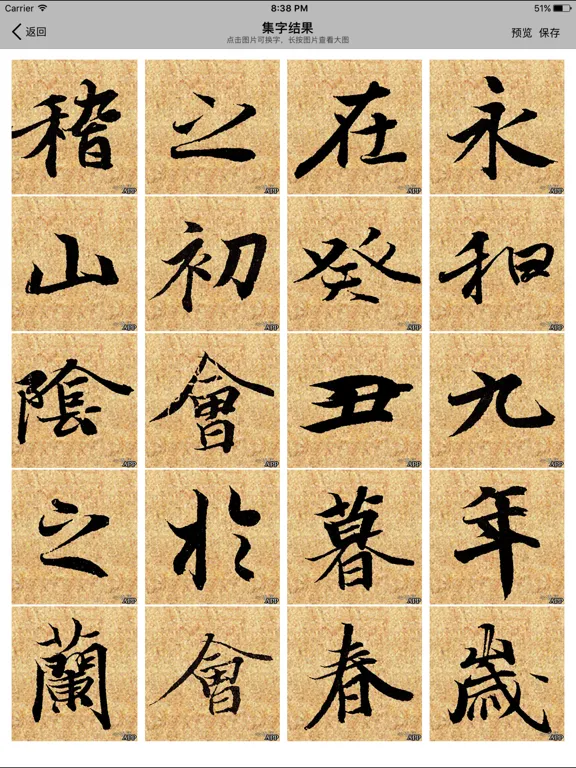 Carrier 8:38 PM 51%
返回 集字结果 预览 保存
点击图片可换字，长按图片查看大图
永和九年歲
在癸丑暮春
之初會於會
稽山陰之蘭